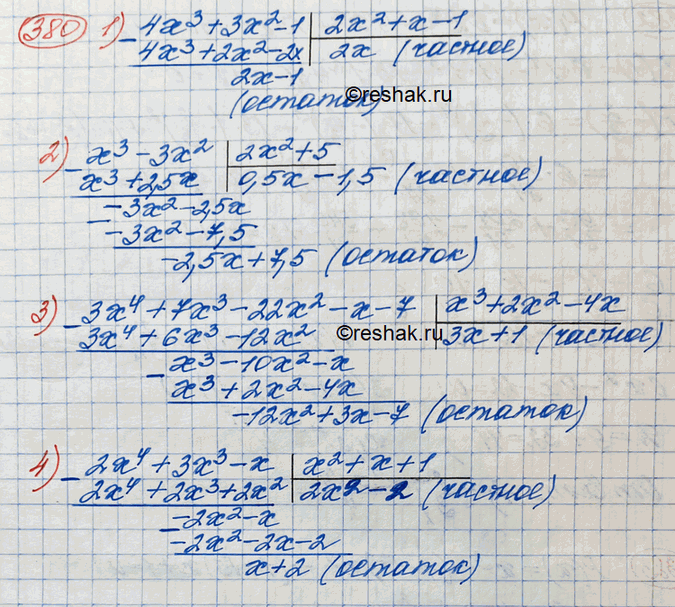 380 1) - 4x³ + 3x² - 1 | 2x² + x - 1
4x³ + 2x² - 2x | 2x (частное)
2x - 1
(остаток)
©reshak.ru
2) - x³ - 3x² | 2x² + 5
x³ + 2,5x | 0,5x - 1,5 (частное)
- -3x² - 2,5x
-3x² - 7,5
-2,5x + 7,5 (остаток)
3) - 3x⁴ + 7x³ - 22x² - x - 7 | x³ + 2x² - 4x
3x⁴ + 6x³ - 12x² | 3x + 1 (частное)
©reshak.ru
- x³ - 10x² - x
x³ + 2x² - 4x
-12x² + 3x - 7 (остаток)
4) - 2x⁴ + 3x³ - x | x² + x + 1
2x⁴ + 2x³ + 2x² | 2x2 - 2 (частное)
- -2x² - x
-2x² - 2x - 2
x + 2 (остаток)